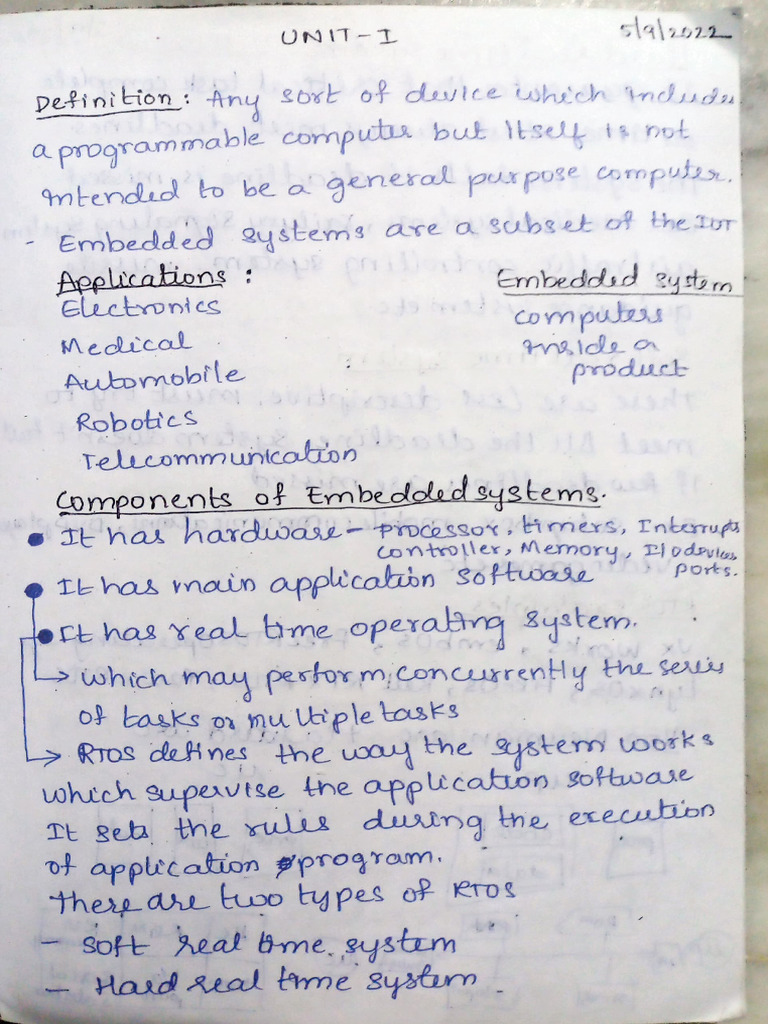 UNIT-I
5/9/2022
Definition: Any sort of device which includes
a programmable computer but itself is not
intended to be a general purpose computer.
- Embedded systems are a subset of the IOT
Applications:
Electronics
Medical
Automobile
Robotics
Telecommunication
Embedded System
computers
inside a
product
Components of Embedded systems.
• It has hardware - Processor, timers, Interrupts
controller, Memory, I/o devices
ports.
• It has main application software
• It has real time operating system.
→ which may perform concurrently the series
of tasks or multiple tasks
→ RTOS defines the way the system works
which supervise the application software
It sets the rules during the execution
of application program.
There are two types of RTOS
- Soft real time system
- Hard real time system